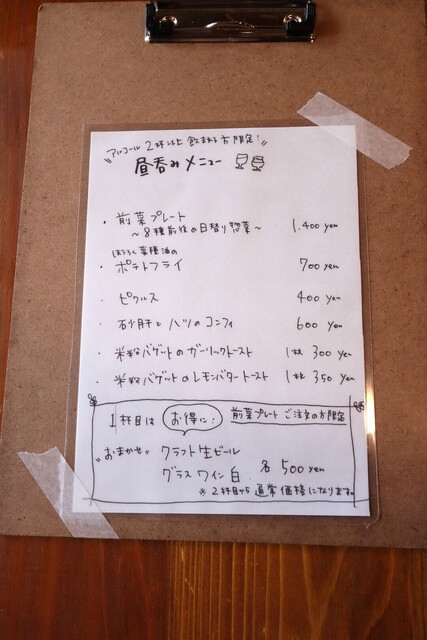 "アルコール2杯以上飲まれる方限定!"
昼呑みメニュー
・前菜プレート 1,400 yen
～8種前後の日替り惣菜～
ほうろく菜種油の
・ポテトフライ 700 yen
・ピクルス 400 yen
・砂肝とハツのコンフィ 600 yen
・米粉バゲットのガーリックトースト 1枚 300 yen
・米粉バゲットのレモンバタートースト 1枚 350 yen
1杯目は お得に! 前菜プレートご注文の方限定
"おまかせ" クラフト生ビール
グラスワイン白 各500yen
※2杯目から通常価格になります。